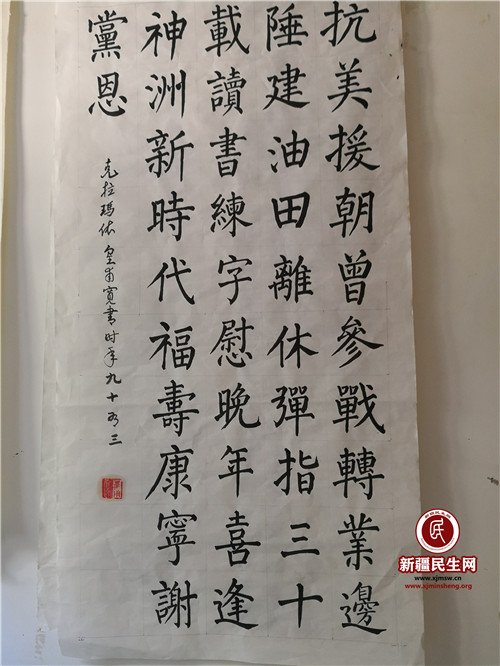 抗美援朝曾參戰轉業邊
陲建油田離休彈指三十
載讀書練字慰晚年喜逢
神洲新時代福壽康寧謝
黨恩
克拉瑪依皇甫寬書时年九十有三
新疆民生网
www.xjmsw.cn
www.xjminsheng.org